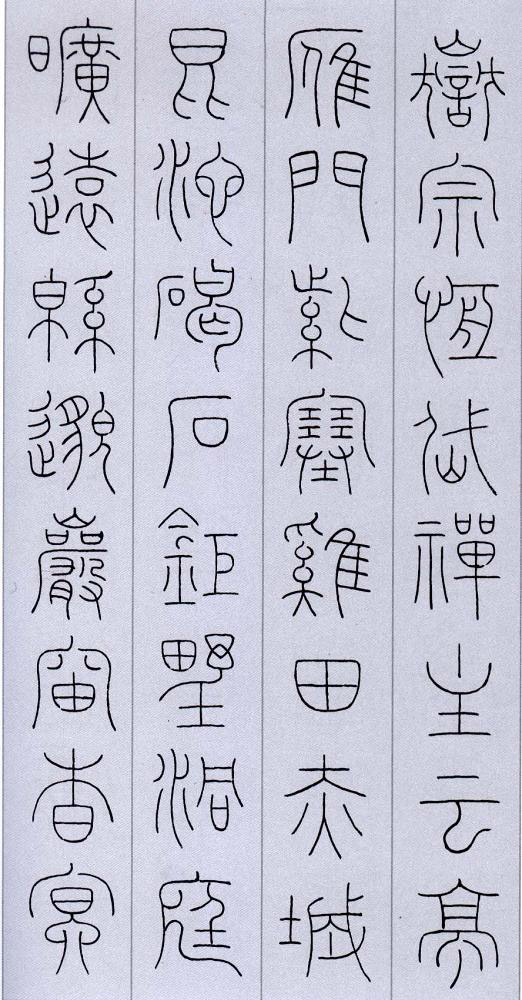 嶽宗恆岱禪主云亭
雁門紫塞雞田赤城
昆池碣石鉅野洞庭
曠遠緜邈巖岫杳冥